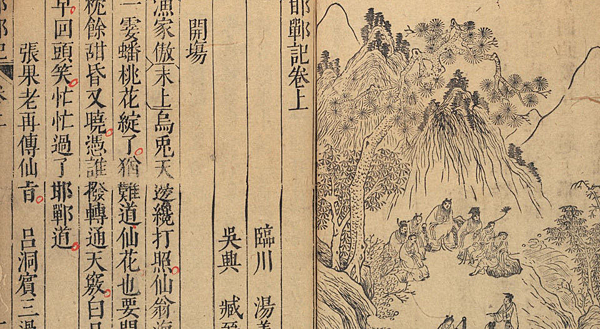 邯鄲記卷上
臨川 湯
吳興 臧
開場
漁家傲末上烏兎天邊纔打照仙翁海
一霎蟠桃花綻了猶難道仙花也要
枕餘甜昏又曉憑誰撥轉通天竅白
早回頭笑忙忙過了邯鄲道
張果老再傳仙旨 呂洞賓三過